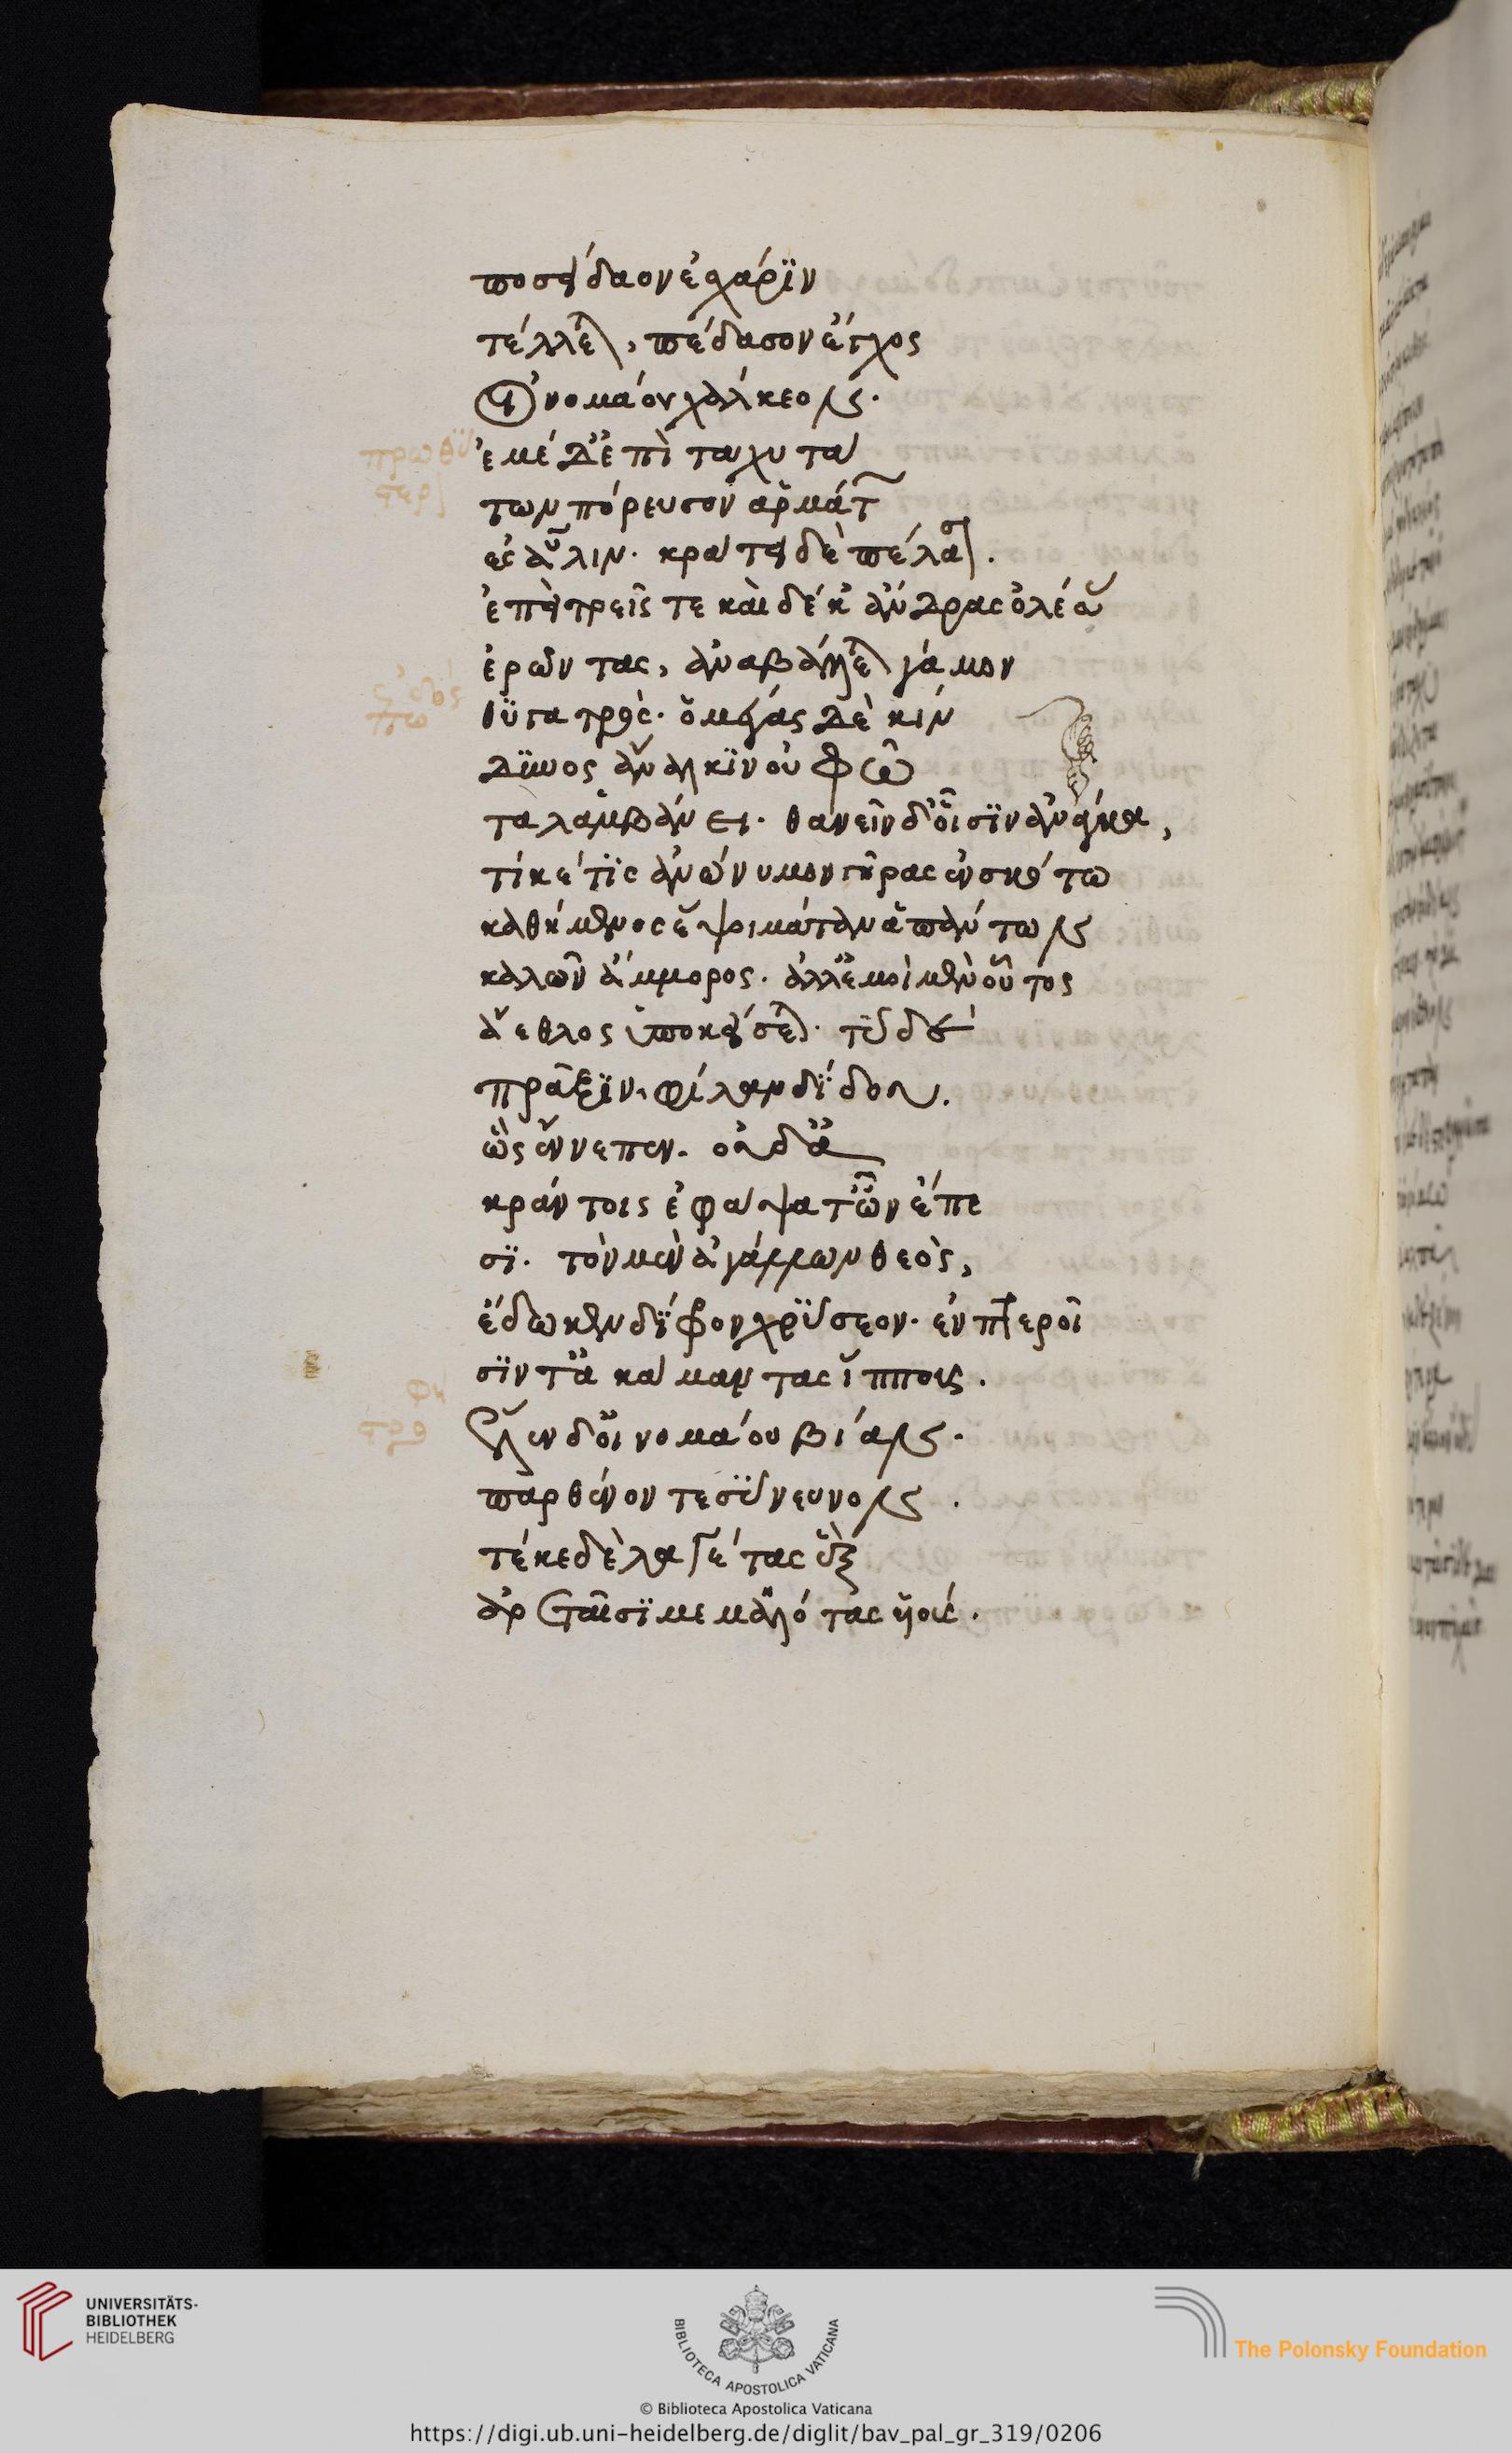 ποσείδαον ἐς χάρϊν
τέλλεται, πέδασον ἔγχος
Οἰνομάου χάλκεον.
ἐμὲ δ' ἐπὶ ταχυτά
των πόρευσον ἁρμάτων
ἐς ἆλιν. κράτει δὲ πέλασον.
ἐπεὶ τρεῖς τε καὶ δέκ' ἄνδρας ὀλέσας
ἐρῶντας, ἀναβάλλεται γάμον
θϋγατρός. ὁ μέγας δὲ κίν
δϋνος ἄναλκϊν οὐ φῶ
τα λαμβάνει. θανεῖν δ' οἷσϊν ἀνάγκα,
τί κέ τϊς ἀνώνυμον γῆρας ἐν σκότω
καθήμενος ἕψοι μάταν ἁπάντων
καλῶν ἄμμορος. ἀλλ' ἐμοὶ μὲν οὗτος
ἄεθλος ὑποκείσεται. τϋ δὲ
πρᾶξϊν φίλαν δΐδοι.
ὣς ἔννεπεν. οὐδ' ἀ
κράντοις ἐφάψατ' ὦν ἔπε
σϊ. τὸν μὲν ἀγάλλων θεὸς,
ἔδωκεν δΐφρον χρΰσεον. ἐν πτεροῖ
σϊν τ' ἀκάμαντας ἵππους.
ἕλεν δ' οἰνομάου βίαν.
παρθένον τε σΰνευνον.
τέκε δὲ λαγέτας ἓξ
ἀρεταῖσϊ μεμαλότας υἱούς.
UNIVERSITÄTS-
BIBLIOTHEK
HEIDELBERG
BIBLIOTECA APOSTOLICA VATICANA
The Polonsky Foundation
© Biblioteca Apostolica Vaticana
https://digi.ub.uni-heidelberg.de/diglit/bav_pal_gr_319/0206